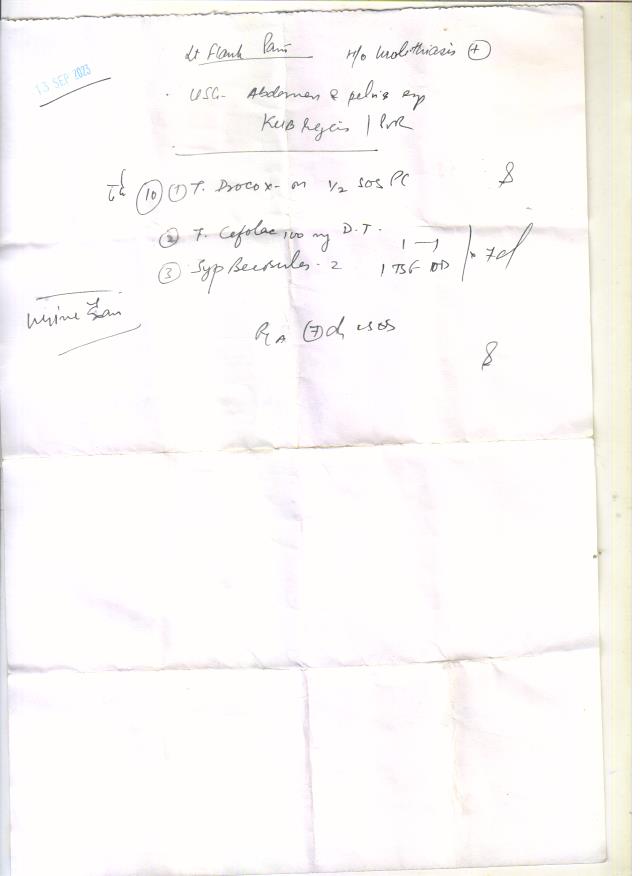 13 SEP 2023
Lt Flank Pain H/o Urolithiasis +
USG- Abdomen & pelvis exp
KUB Region / PVR
10 1 T. Drocox-M 1/2 SOS PC
2 T. Cefolac 100 mg D.T. 1—1
3 Syp Becosules-Z 1 TSF OD x 7d
Urine
R/A 7 d SOS